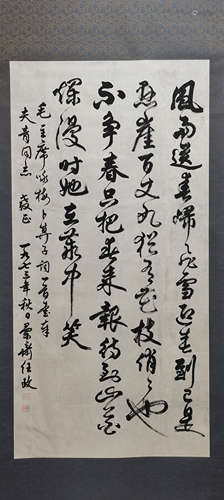 風雨送春歸飛雪迎春到已是
懸崖百丈冰猶有花枝俏〻也
不争春只把春来報待到山花
爛漫時她在叢中笑
毛主席咏梅卜算子詞一首書奉
同志 教正 一九七三年秋日 任政